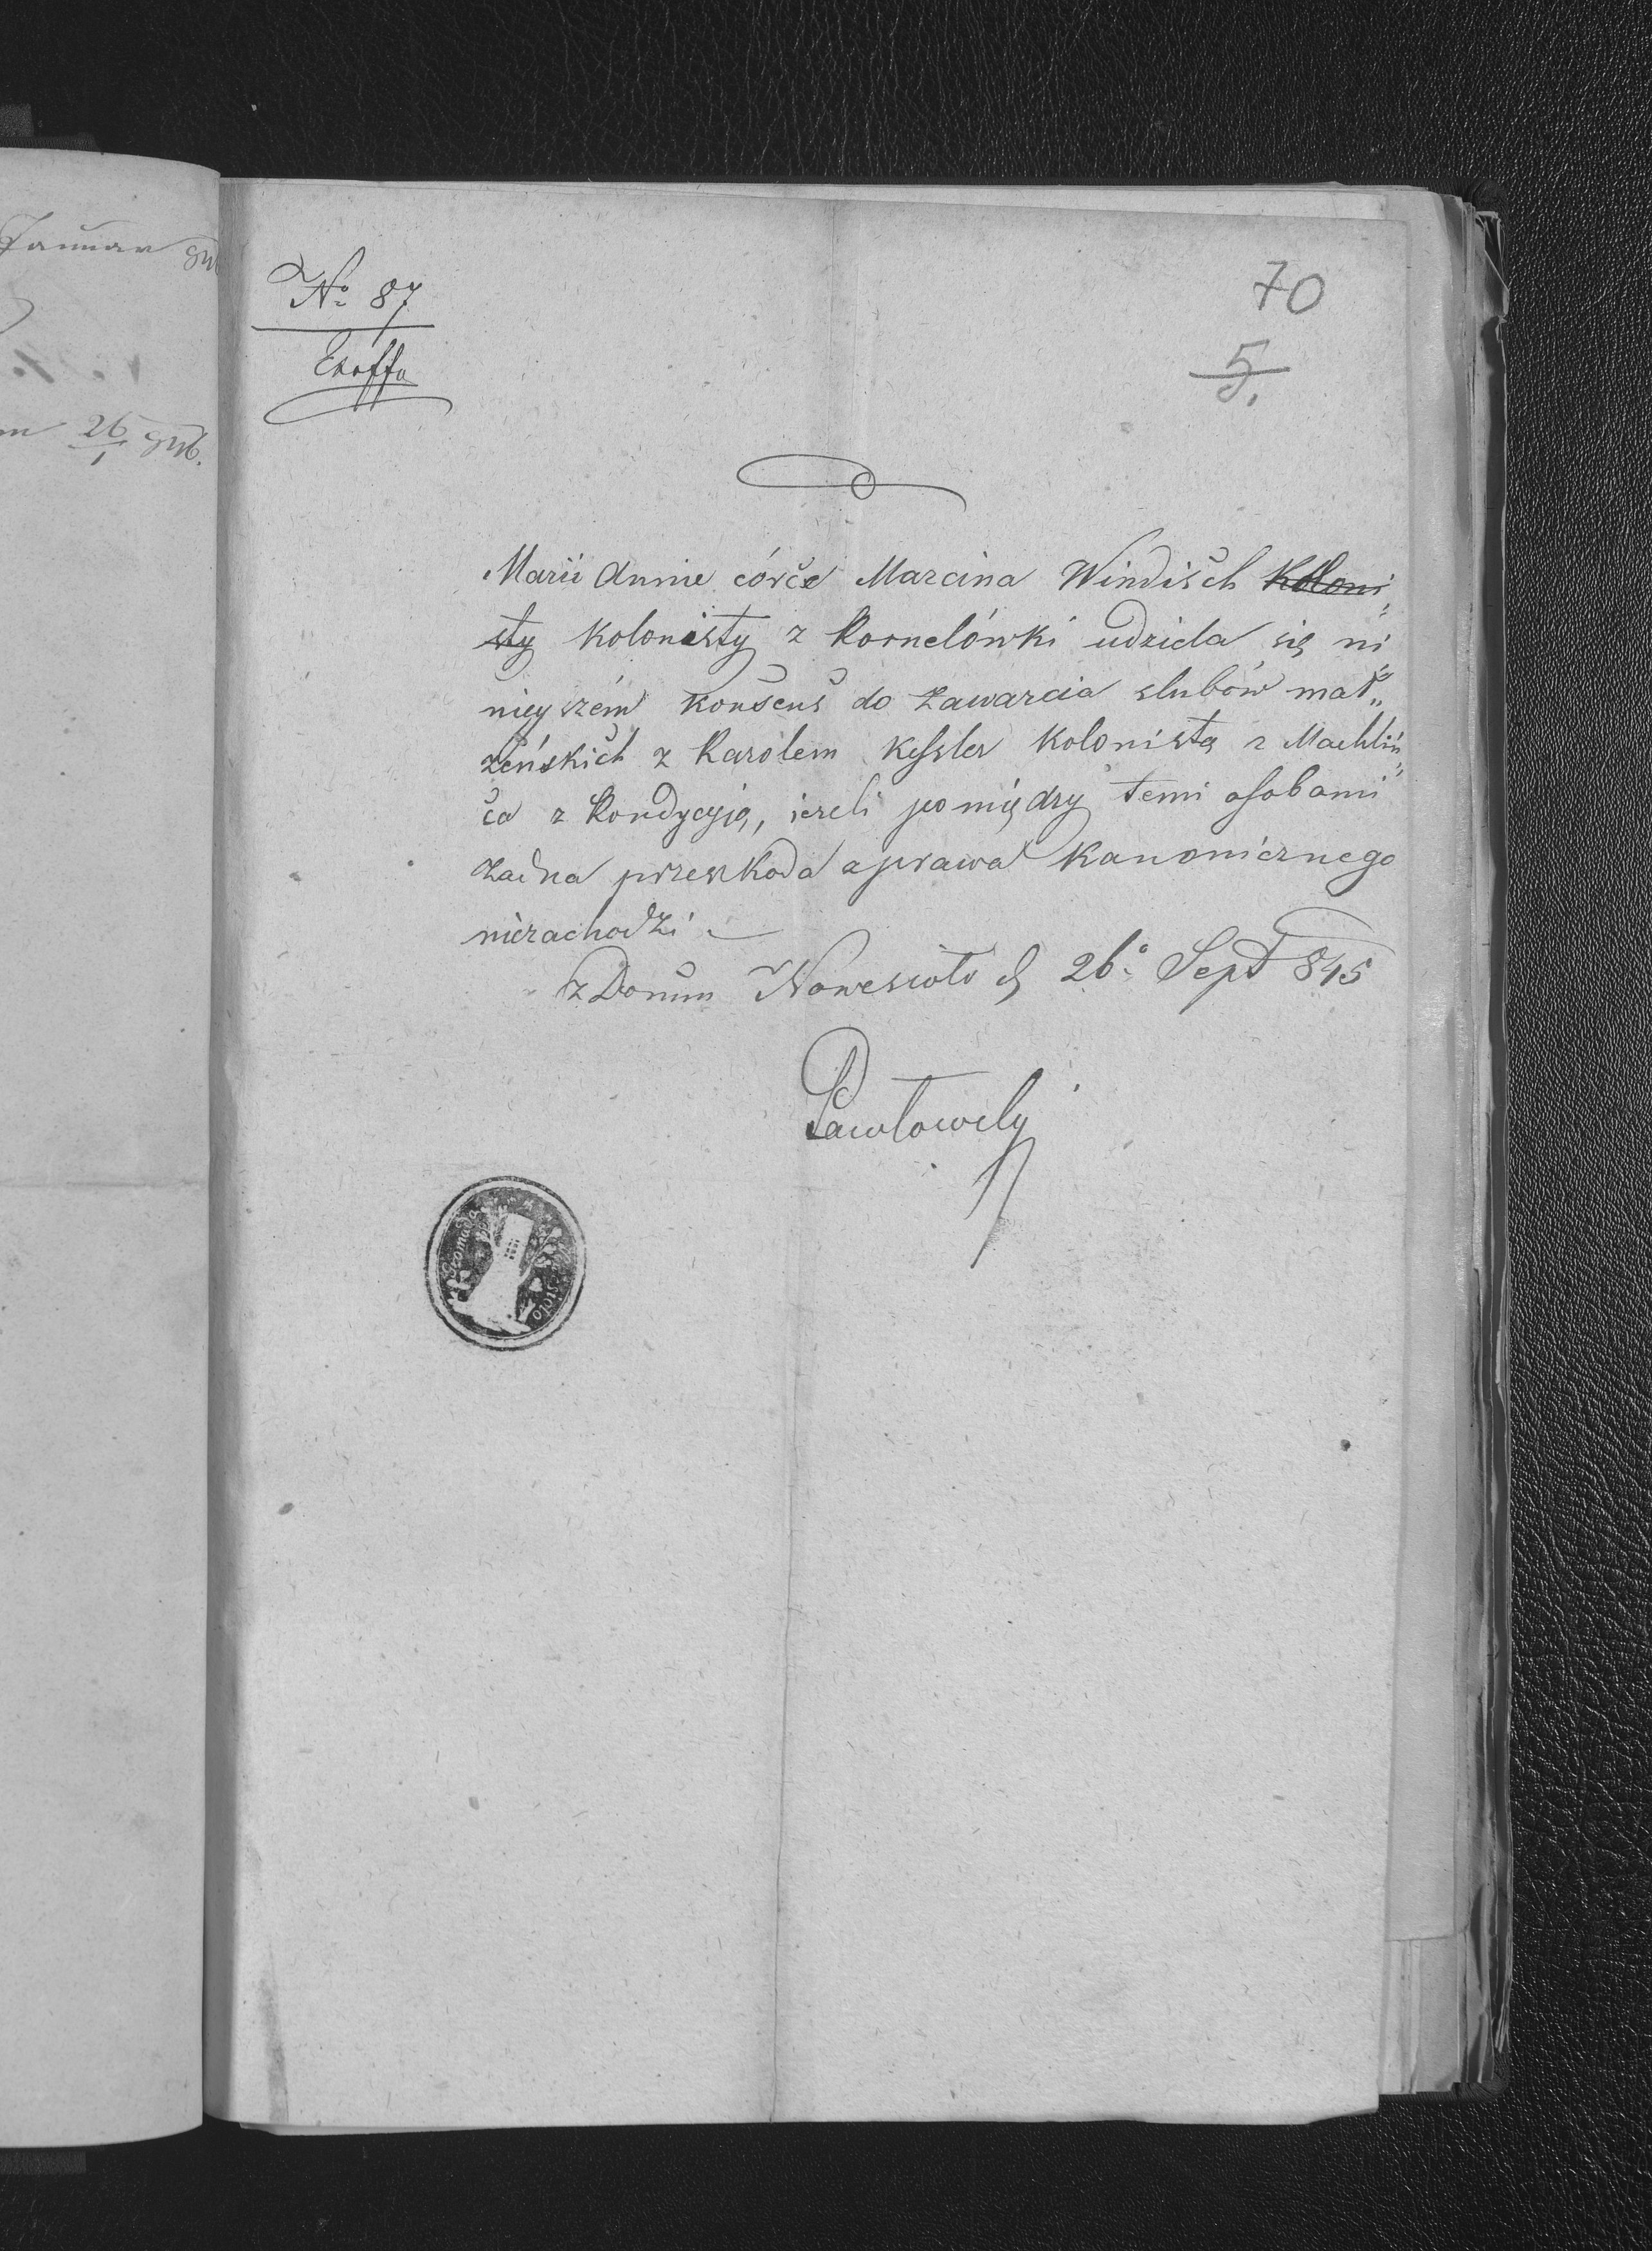 Januar 846
26/1 846.
No 87
Exoffo
70
5.
Marii Annie córce Marcina Windisch Koloni„
sty kolonisty z Kornelówki udziela się ni
nieyszém Konsens do zawarcia slubów mał„
zeńskich z Karolem Keſsler kolonistą z Machliń„
ca z Kondycyją, iezeli pomiędzy temi oſobami
zadna przeszkoda z prawa Kanonicznego
niezachodzi.—
z Domin Nowesioło d 26o Sept 845
Gromada
sioło